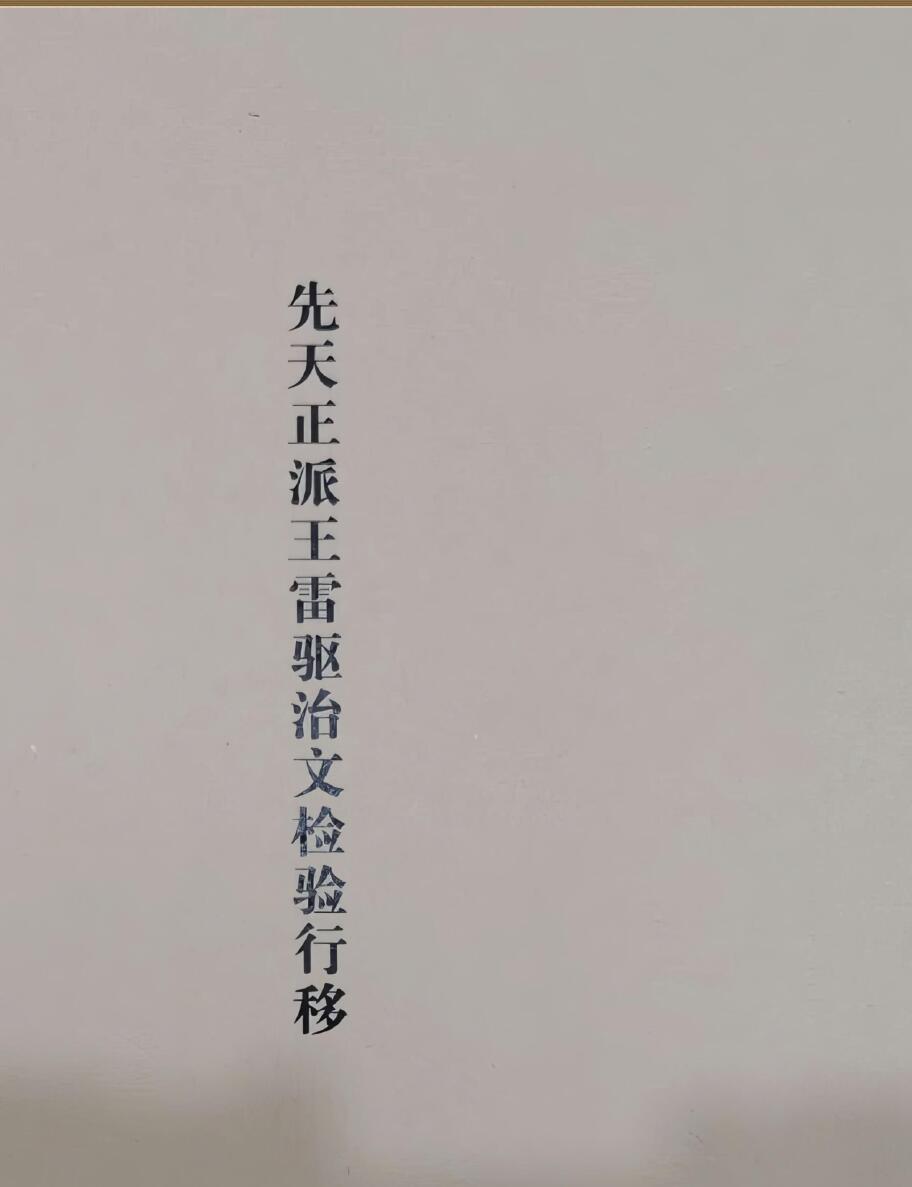 先天正派王雷驱治文检验行移